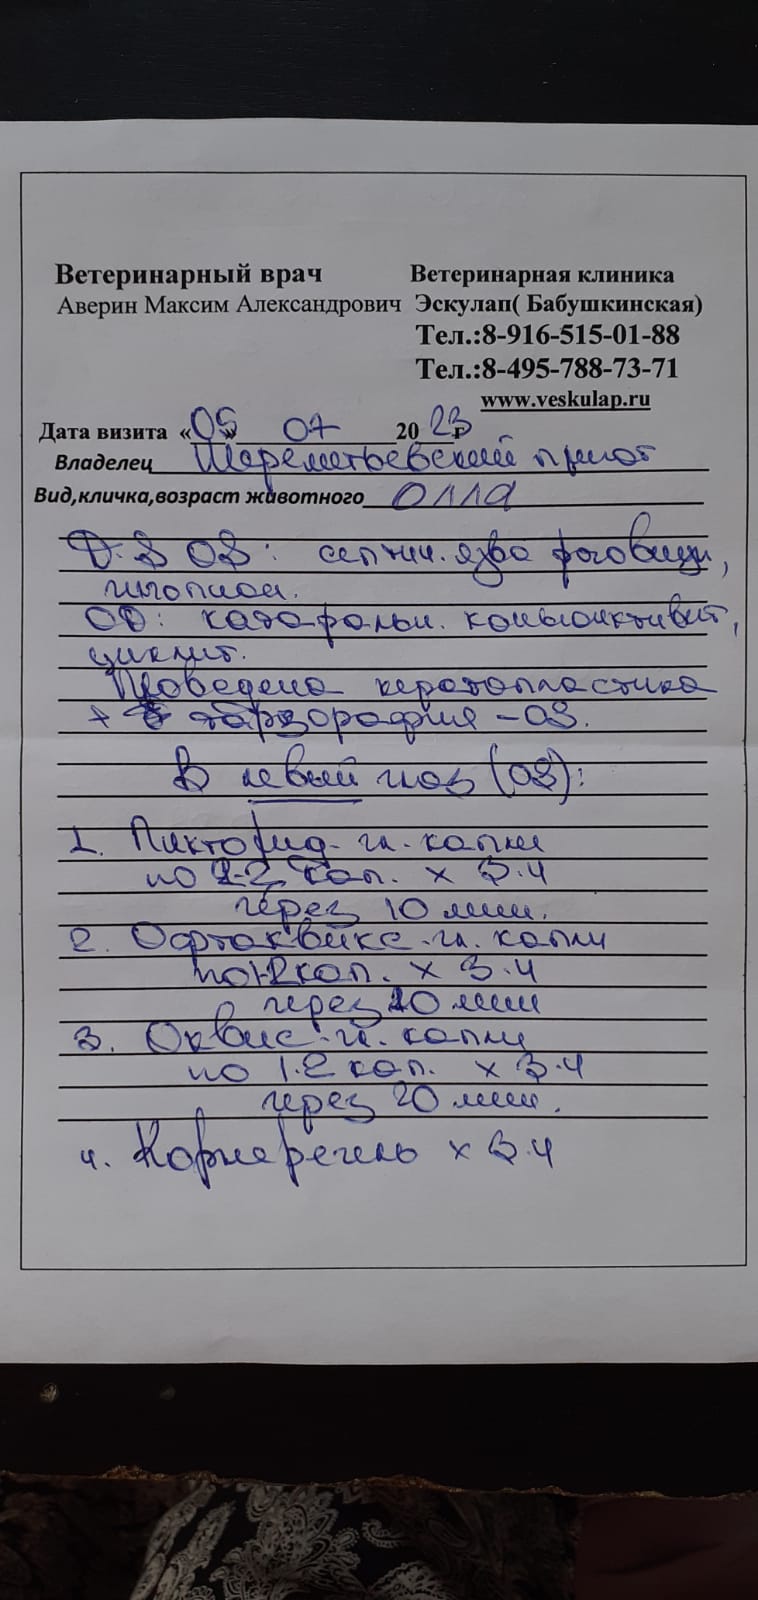 Ветеринарный врач Ветеринарная клиника
Аверин Максим Александрович Эскулап( Бабушкинская)
Тел.:8-916-515-01-88
Тел.:8-495-788-73-71
www.veskulap.ru
Дата визита «05» 07 2023г
Владелец Шереметьевский приют
Вид,кличка,возраст животного Олла
D.S OS: септич. язва роговицы,
гипопион.
OD: катаральн. конъюнктивит,
циклит.
Проведена кератопластика
+ тарзорафия - OS.
В левый глаз (OS):
1. Пиклофид - гл. капли
по 1-2 кап. x 3.ч
через 10 мин.
2. Офтаквикс - гл. капли
по 1-2 кап. x 3.ч
через 20 мин
3. Оквис - гл. капли
по 1-2 кап. x 3.ч
через 20 мин.
4. Корнерегель x 3.ч